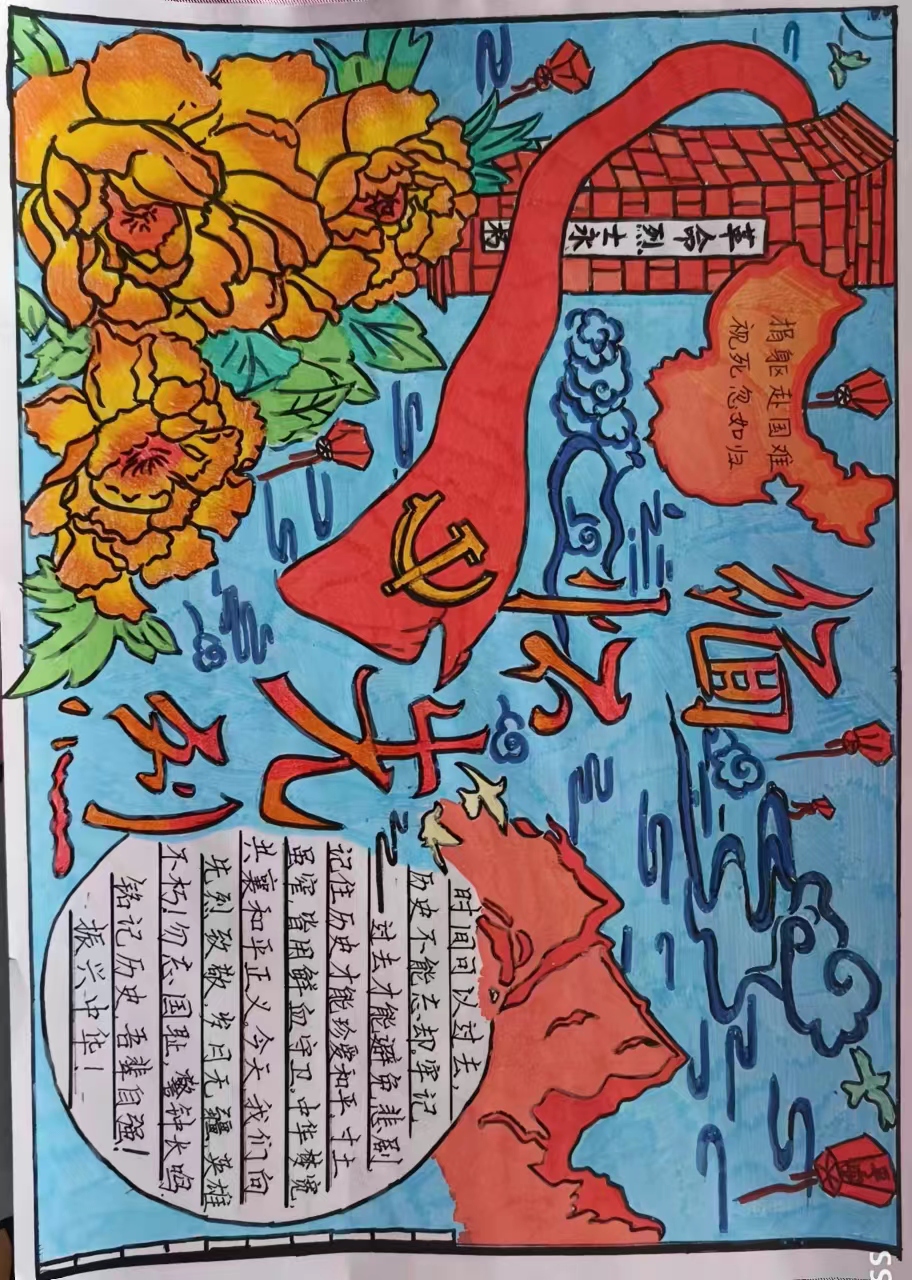 革命烈士永
捐身赴国难
视死忽如归
缅怀先烈!
时间可以过去,
历史不能忘却。牢记
过去才能避免悲剧
记住历史才能珍爱和平。寸土
虽窄 皆用鲜血守卫,中华梦宽
共襄和平正义。今天我们向
先烈致敬,岁月无疆,英雄
不朽!勿忘国耻,警钟长鸣
铭记历史 吾辈自强!
振兴中华!
SS